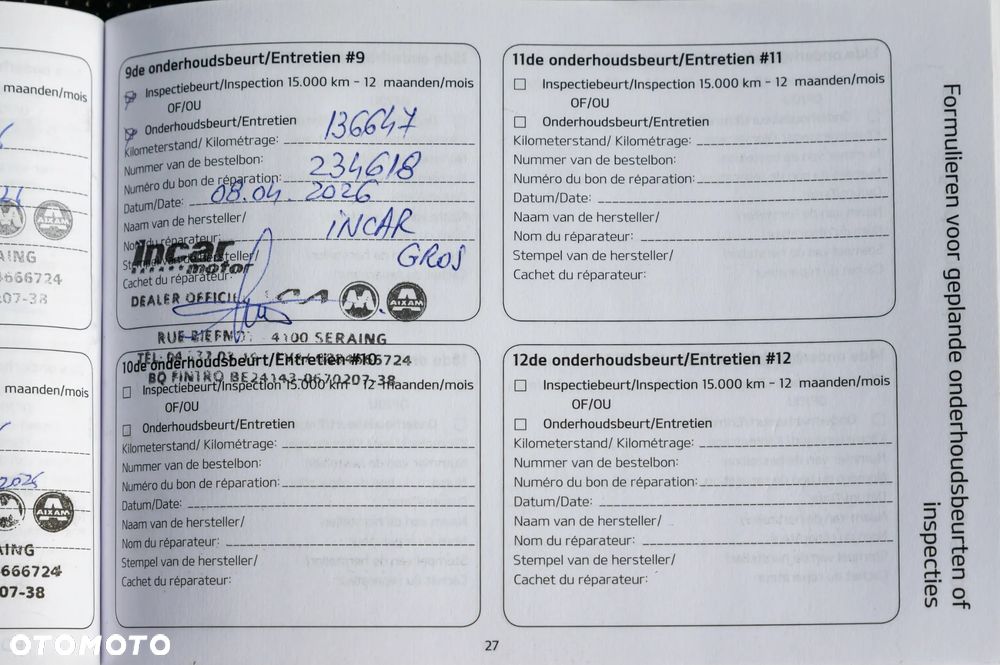 maanden/mois
AIXAM
AING
4666724
207-38
maanden/mois
2025
AIXAM
AING
666724
07-38
9de onderhoudsbeurt/Entretien #9
Inspectiebeurt/Inspection 15.000 km - 12 maanden/mois
OF/OU
Onderhoudsbeurt/Entretien
Kilometerstand/ Kilométrage: 136647
Nummer van de bestelbon:
Numéro du bon de réparation: 234618
Datum/Date: 08.04.2026
Naam van de hersteller/
Nom du réparateur: INCAR
Stempel van de hersteller/ GROS
Cachet du réparateur:
Incar
motor
DEALER OFFICIEL
AIXAM
4100 SERAING
10de onderhoudsbeurt/Entretien #10
Inspectiebeurt/Inspection 15.000 km - 12 maanden/mois
OF/OU
Onderhoudsbeurt/Entretien
Kilometerstand/ Kilométrage:
Nummer van de bestelbon:
Numéro du bon de réparation:
Datum/Date:
Naam van de hersteller/
Nom du réparateur:
Stempel van de hersteller/
Cachet du réparateur:
11de onderhoudsbeurt/Entretien #11
Inspectiebeurt/Inspection 15.000 km - 12 maanden/mois
OF/OU
Onderhoudsbeurt/Entretien
Kilometerstand/ Kilométrage:
Nummer van de bestelbon:
Numéro du bon de réparation:
Datum/Date:
Naam van de hersteller/
Nom du réparateur:
Stempel van de hersteller/
Cachet du réparateur:
12de onderhoudsbeurt/Entretien #12
Inspectiebeurt/Inspection 15.000 km - 12 maanden/mois
OF/OU
Onderhoudsbeurt/Entretien
Kilometerstand/ Kilométrage:
Nummer van de bestelbon:
Numéro du bon de réparation:
Datum/Date:
Naam van de hersteller/
Nom du réparateur:
Stempel van de hersteller/
Cachet du réparateur:
Formulieren voor geplande onderhoudsbeurten of
inspecties
27
OTOMOTO